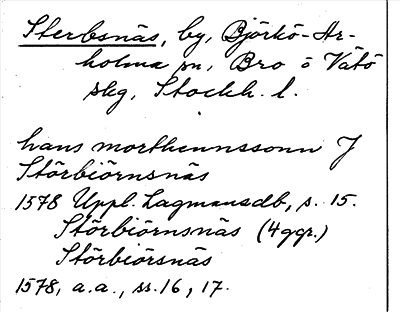 Sterbsnäs, by, Björkö-Ar-
holma sn, Bro o Vätö
skg, Stockh. l.
hans morthennssonn J
Störbiörnsnäs
1578 Uppl. Lagmansdb, s. 15.
Störbiörnsnäs (4 ggr.)
Störbiorsnäs
1578, a.a., ss. 16, 17.